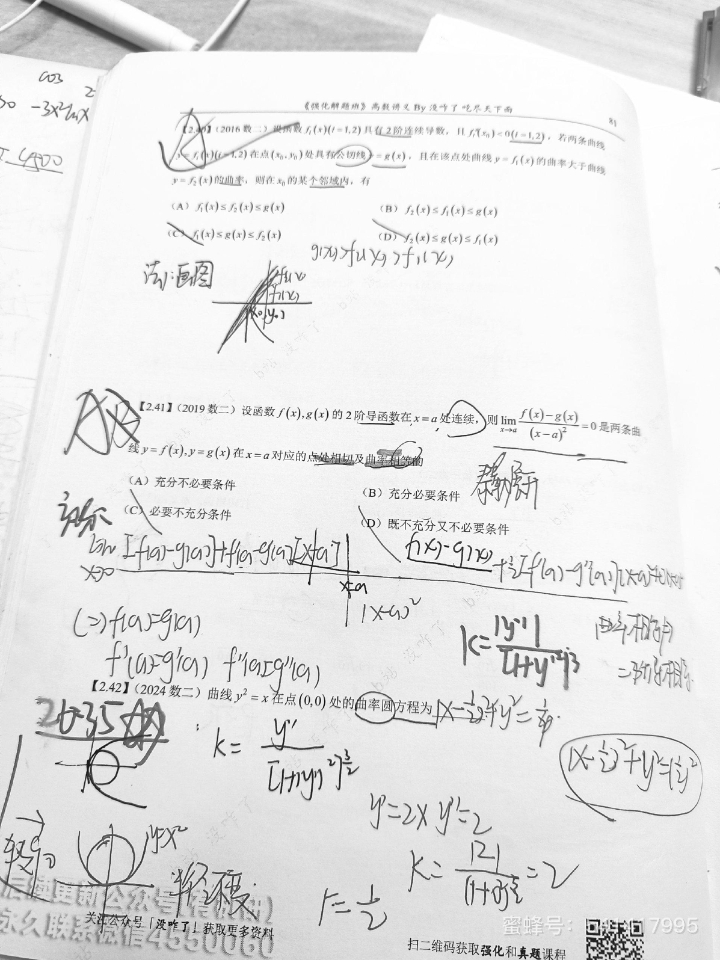 cos
《强化解题班》高数讲义 By 没咋了 吃尽天下面
81
(2016 数二) 设函数 f₁(x)(i=1,2) 具有 2 阶连续导数，且 fᵢ″(x₀)<0(i=1,2)，若两条曲线
y=fᵢ(x)(i=1,2) 在点 (x₀,y₀) 处具有公切线 y=g(x)，且在该点处曲线 y=f₁(x) 的曲率大于曲线
y=f₂(x) 的曲率，则在 x₀ 的某个邻域内，有
(A) f₁(x)≤f₂(x)≤g(x)
(B) f₂(x)≤f₁(x)≤g(x)
(C) f₁(x)≤g(x)≤f₂(x)
(D) f₂(x)≤g(x)≤f₁(x)
g(x)>f₂(x)>f₁(x)
法1:画图
【2.41】(2019 数二) 设函数 f(x),g(x) 的 2 阶导函数在 x=a 处连续，则 lim_{x→a} (f(x)-g(x))/(x-a)² =0 是两条曲
线 y=f(x),y=g(x) 在 x=a 对应的点处相切及曲率相等的
泰勒展开
(A) 充分不必要条件
(B) 充分必要条件
(C) 必要不充分条件
(D) 既不充分又不必要条件
充分
f(x)-g(x)
x=a
(x-a)²
(=) f(a)=g(a)
f'(a)=g'(a) f''(a)=g''(a)
K=|y''|/[1+y'²]^{3/2}
曲率相同
【2.42】(2024 数二) 曲线 y²=x 在点 (0,0) 处的曲率圆方程为 (x-1/2)²+y²=1/4
26-35
K= y''/[1+(y')²]^{3/2}
(x-1/2)²+y²=(1/2)²
y'=2x y''=2
y=x²
K=|2|/(1+0)^{3/2}=2
半径不变
r=1/2
后续更新公众号【有研冲】
永久联系微信4550060
关注公众号「没咋了」获取更多资料
扫二维码获取强化和真题课程
7995